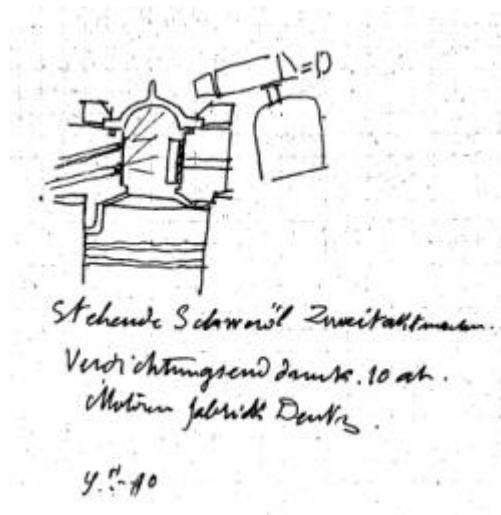 =D
Stehende Schweröl Zweitakt
Verdichtungsenddruck. 10 at.
Motoren fabrick Deutz